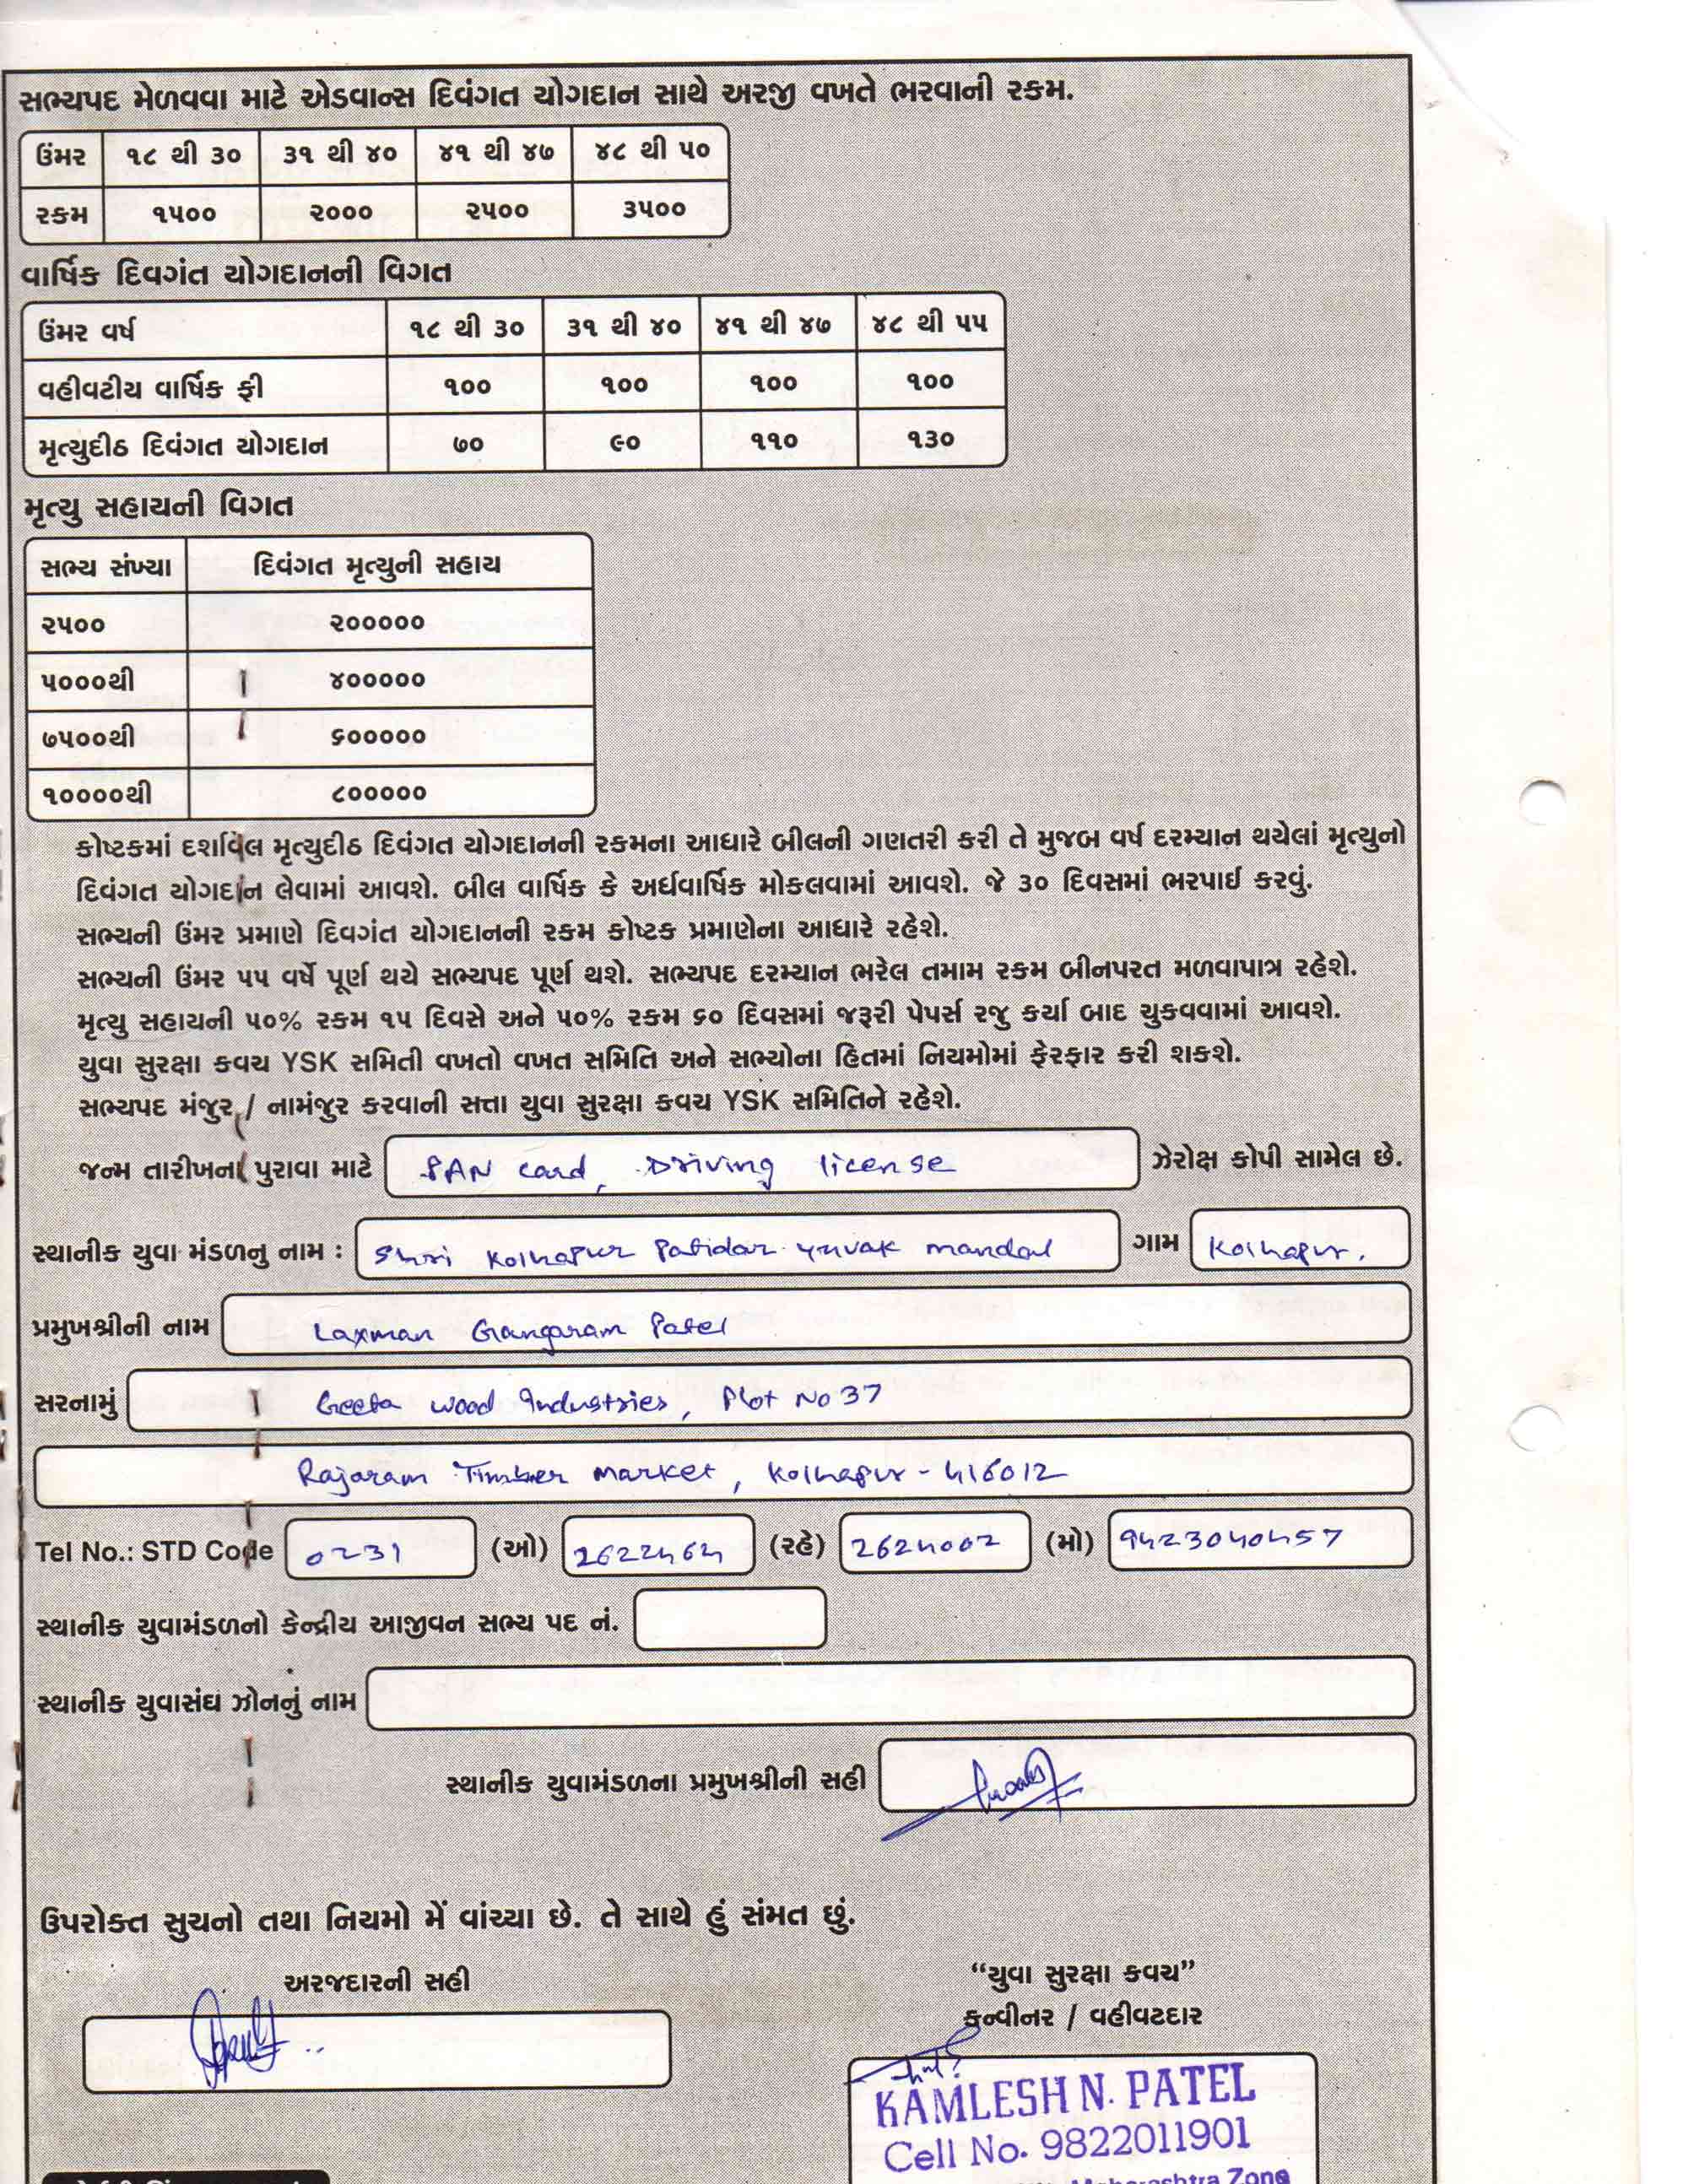 સભ્યપદ મેળવવા માટે એડવાન્સ દિવંગત યોગદાન સાથે અરજી વખતે ભરવાની રકમ.
ઉંમર ૧૮ થી ૩૦ ૩૧ થી ૪૦ ૪૧ થી ૪૭ ૪૮ થી ૫૦
રકમ ૧૫૦૦ ૨૦૦૦ ૨૫૦૦ ૩૫૦૦
વાર્ષિક દિવગંત યોગદાનની વિગત
ઉંમર વર્ષ ૧૮ થી ૩૦ ૩૧ થી ૪૦ ૪૧ થી ૪૭ ૪૮ થી ૫૫
વહીવટીય વાર્ષિક ફી ૧૦૦ ૧૦૦ ૧૦૦ ૧૦૦
મૃત્યુદીઠ દિવંગત યોગદાન ૭૦ ૯૦ ૧૧૦ ૧૩૦
મૃત્યુ સહાયની વિગત
સભ્ય સંખ્યા દિવંગત મૃત્યુની સહાય
૨૫૦૦ ૨૦૦૦૦૦
૫૦૦૦થી ૪૦૦૦૦૦
૭૫૦૦થી ૬૦૦૦૦૦
૧૦૦૦૦થી ૮૦૦૦૦૦
કોષ્ટકમાં દર્શાવેલ મૃત્યુદીઠ દિવંગત યોગદાનની રકમના આધારે બીલની ગણતરી કરી તે મુજબ વર્ષ દરમ્યાન થયેલાં મૃત્યુનો
દિવંગત યોગદાન લેવામાં આવશે. બીલ વાર્ષિક કે અર્ધવાર્ષિક મોકલવામાં આવશે. જે ૩૦ દિવસમાં ભરપાઈ કરવું.
સભ્યની ઉંમર પ્રમાણે દિવગંત યોગદાનની રકમ કોષ્ટક પ્રમાણેના આધારે રહેશે.
સભ્યની ઉંમર ૫૫ વર્ષે પૂર્ણ થયે સભ્યપદ પૂર્ણ થશે. સભ્યપદ દરમ્યાન ભરેલ તમામ રકમ બીનપરત મળવાપાત્ર રહેશે.
મૃત્યુ સહાયની ૫૦% રકમ ૧૫ દિવસે અને ૫૦% રકમ ૬૦ દિવસમાં જરૂરી પેપર્સ રજુ કર્યા બાદ ચુકવવામાં આવશે.
યુવા સુરક્ષા કવચ YSK સમિતી વખતો વખત સમિતિ અને સભ્યોના હિતમાં નિયમોમાં ફેરફાર કરી શકશે.
સભ્યપદ મંજુર / નામંજુર કરવાની સત્તા યુવા સુરક્ષા કવચ YSK સમિતિને રહેશે.
જન્મ તારીખના પુરાવા માટે PAN card, Driving license ઝેરોક્ષ કોપી સામેલ છે.
સ્થાનીક યુવા મંડળનુ નામ : Shri Kolhapur Patidar yuvak mandal ગામ Kolhapur.
પ્રમુખશ્રીની નામ Laxman Gangaram Patel
સરનામું Geeta wood Industries, Plot No 37
Rajaram Timber market, Kolhapur - 416012
Tel No.: STD Code 0231 (ઓ) 2622464 (રહે) 2624002 (મો) 9423040457
સ્થાનીક યુવામંડળનો કેન્દ્રીય આજીવન સભ્ય પદ નં.
સ્થાનીક યુવાસંઘ ઝોનનું નામ
સ્થાનીક યુવામંડળના પ્રમુખશ્રીની સહી
ઉપરોક્ત સુચનો તથા નિયમો મેં વાંચ્યા છે. તે સાથે હું સંમત છું.
અરજદારની સહી
“યુવા સુરક્ષા કવચ”
કન્વીનર / વહીવટદાર
KAMLESH N. PATEL
Cell No. 9822011901
Maharashtra Zone